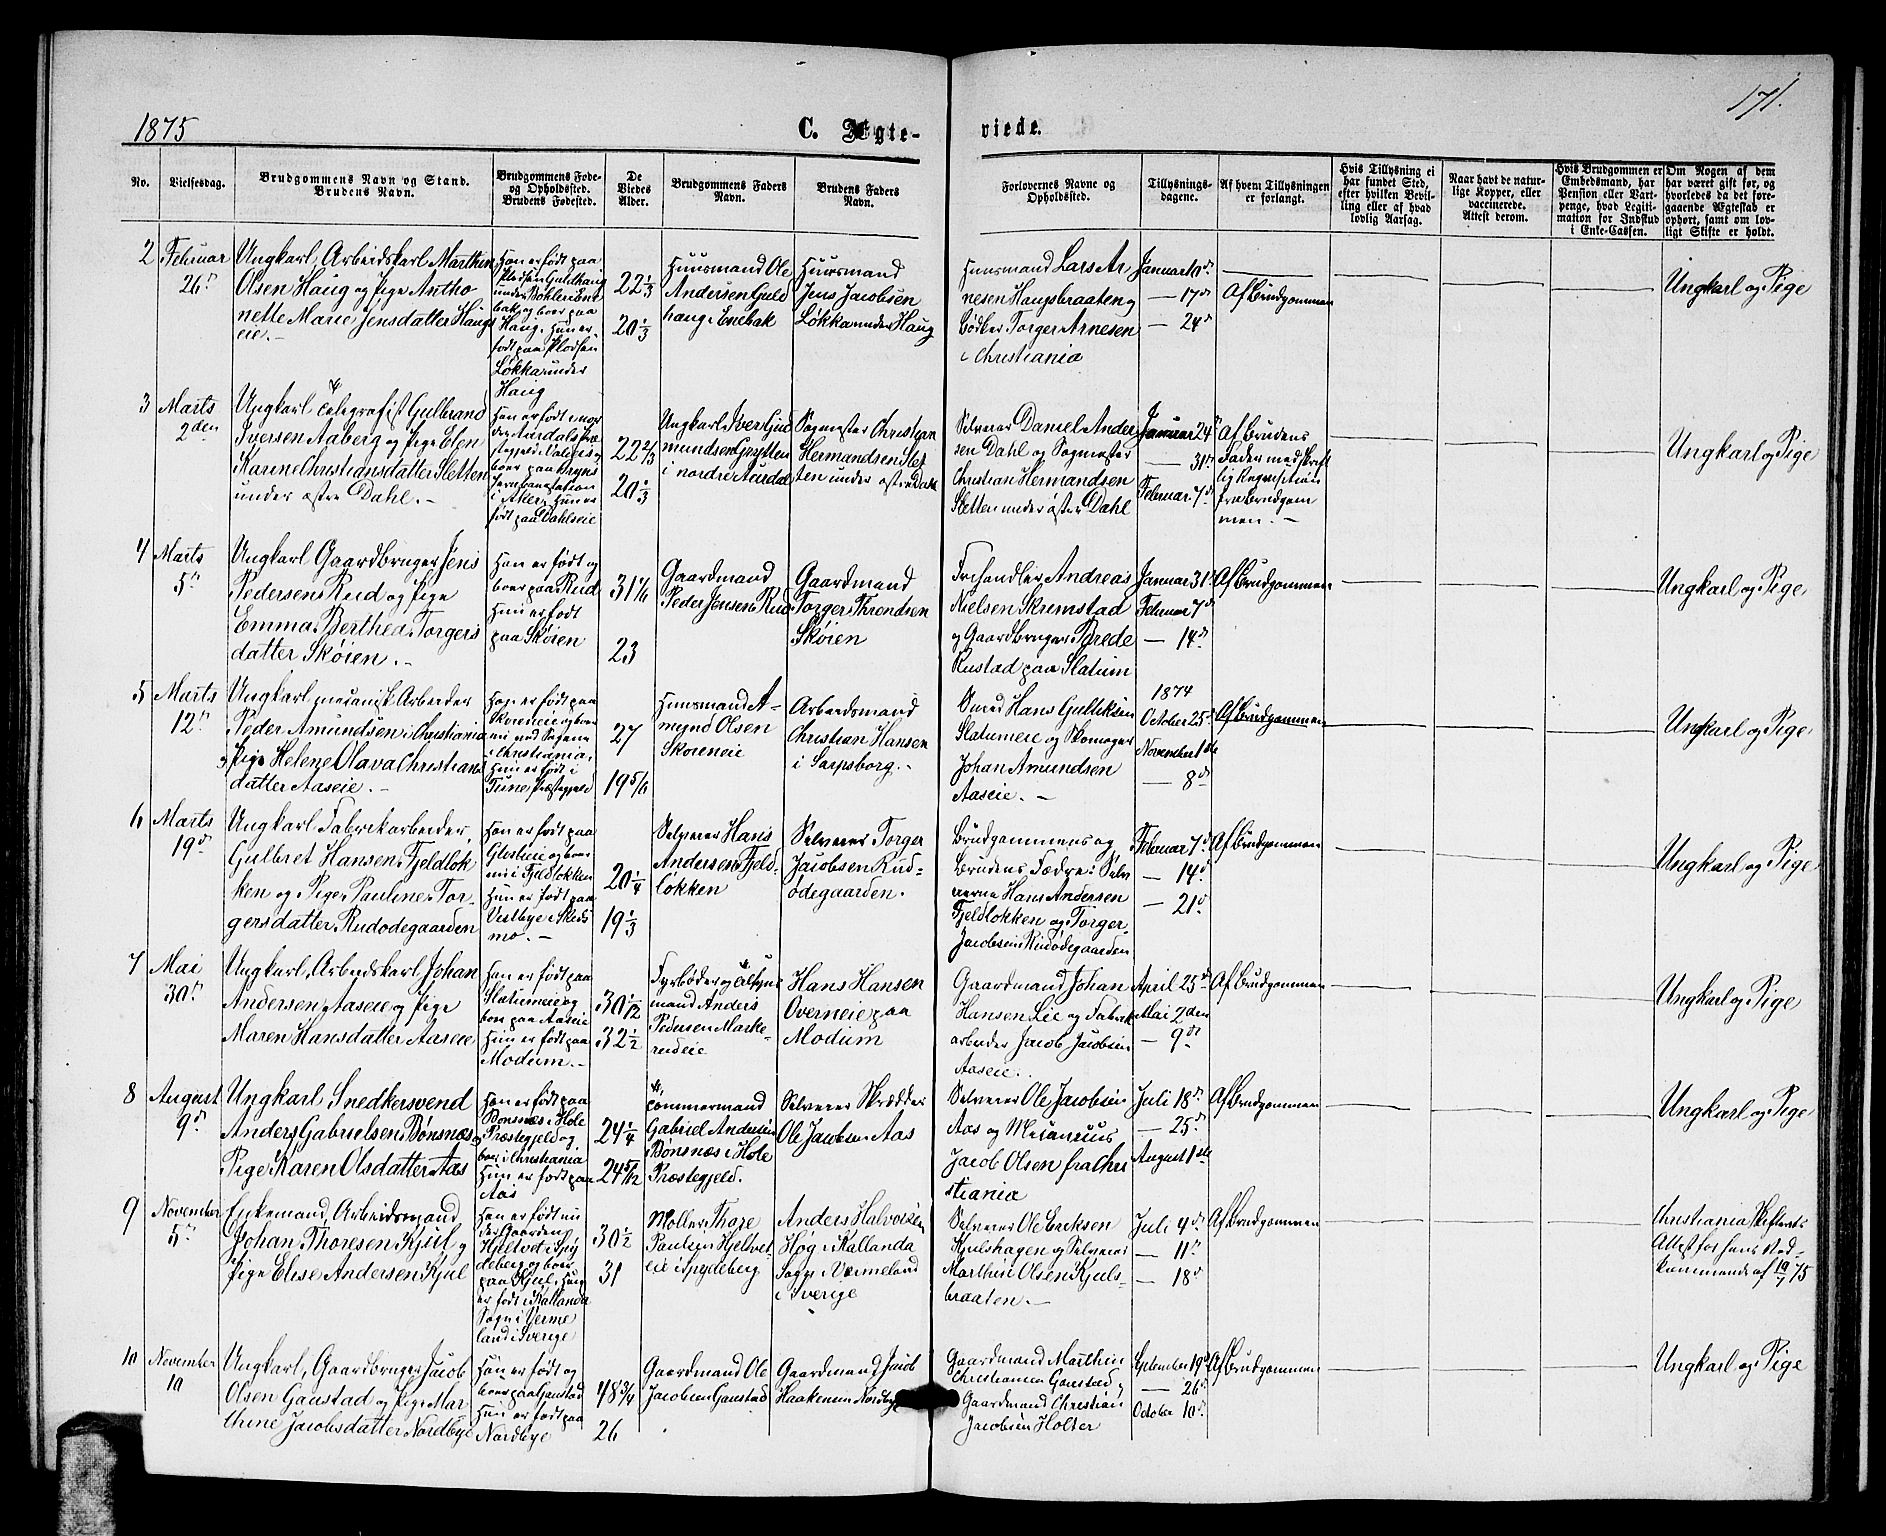 1875
C. Ægte-
viede.
171.
No.
Vielsesdag.
Brudgommens Navn og Stand.
Brudens Navn.
Brudgommens Føde-
og Opholdssted.
Brudens Fødested.
De
Viedes
Alder.
Brudgommens Faders
Navn.
Brudens Faders
Navn.
Forlovernes Navne og
Opholdssted.
Tillysnings-
dagene.
Af hvem Tillysningen
er forlangt.
Hvis Tillysning ei
har fundet Sted,
efter hvilken Bevil-
ling eller af hvad
lovlig Aarsag.
Naar havt de natur-
lige Kopper, eller
vaccinerede.
Attest derom.
Hvis Brudgommen er
Embedsmand, har
Pension eller Vart-
penge, hvad Legiti-
mation for Indskud
i Enke-Cassen.
Om Nogen af dem
har været gift før, og
hvorledes da det fore-
gaaende Ægteskab er
ophørt, samt om lov-
ligt Skifte er holdt.
2
Februar
26
Ungkarl, Arbeidskarl Marthin
Olsen Haug og Pige Antho-
nette Marie Jensdatter Haugs
eie.-
Han er født paa
Pladsen Guldhaug
under Bøhler i Ene
bak og boer paa
Haug. Hun er
født paa Pladsen
Løkka under
Haug
22 1/3
20 1/3
Huusmand Ole
Andersen Guld
haug i Enebak
Huusmand
Jens Jacobsen
Løkka under Haug
Huusmand Lars Ar
nesen Haugsbraaten og
Bødker Torger Arnesen
i Christiania
Januar 10
- 17
- 24
Af Brudgommen
Ungkarl og Pige
3
Marts
2den
Ungkarl Telegrafist Gulbrand
Iversen Aaberg og Pige Elen
Karine Christiansdatter Sletten
under østre Dahl.-
Han er født i nor
dre Aurdals Præ
stegjeld i Valdres og
boer paa Bryns
Jernbanestation
i Aker, Hun er
født paa Dahlseie
22 1/3
20 1/3
Ungkarl Iver Gud
mundsen Grytten
i nordre Aurdal
Sagmester Christian
Hermandsen Slet
ten under østre Dahl
Selveier Daniel Ander
sen Dahl og Sagmester
Christian Hermandsen
Sletten under østre Dahl
Januar 24
- 31
Februar 7
Af Brudens
Fader med skrift
lig Reqvisition
fra Brudgom
men.-
Ungkarl og Pige
4
Marts
5
Ungkarl Gaardbruger Jens
Pedersen Rud og Pige
Emma Berthea Torgers
datter Skøien.-
Han er født og
boer paa Rud
Hun er født
paa Skøien
31 1/6
23
Gaardmand
Peder Jensen Rud
Gaardmand
Torger Throndsen
Skøien
Frihandler Andreas
Nielsen Skrimstad
og Gaardbruger Brede
Rustad paa Slatum
Januar 31
Februar 7
- 14
Af Brudgommen
Ungkarl og Pige
5
Marts
12
Ungkarl mecanisk Arbeider
Peder Amundsen i Christiania
og Pige Helene Olava Christians
datter Aaseie.-
Han er født paa
Skøieneie og boer
nu ved Sagene
i Christiania,
Hun er født i
Tune Præstegjeld
27
19 5/6
Huusmand A-
mund Olsen
Skøieneie
Arbeidsmand
Christian Hansen
i Sarpsborg.-
Smed Hans Gulliksen
Slatumeie og Skomager
Johan Amundsen
Aaseie.-
1874
October 25
November 1ste
- 8
Af Brudgommen
Ungkarl og Pige
6
Marts
19
Ungkarl Fabrikarbeider,
Gulbret Hansen Fjeldløk-
ken og Pige Pauline Tor-
gersdatter Rudødegaarden
Han er født paa
Glosheie og boer
nu i Fjeldløkken
Hun er født paa
Vestbye i Skeds
mo.-
20 1/4
19 1/3
Selveier Hans
Andersen Fjeld-
løkken
Selveier Torger
Jacobsen Rud-
ødegaarden.
Brudgommens og
Brudens Fædre: Selv
eierne Hans Andersen
Fjeldløkken og Torger
Jacobsen Rudødegaarden
Februar 7
- 14
- 21
Af Brudgommen
Ungkarl og Pige
7
Mai
30
Ungkarl, Arbeidskarl Johan
Andersen Aaseie og Pige
Maren Hansdatter Aaseie
Han er født paa
Slatumeie og
boer paa Aaseie
Hun er født paa
Modum.-
30 1/12
32 1/2
Fyrbøder og
mand Anders
Pedersen Marke-
rudeie
Hans Hansen
Overneie paa
Modum
Gaardmand Johan
Hansen Lie og Fabrik
arbeider Jacob Jacobsen
Aaseie.
April 25
Mai 2den
- 9
Af Brudgommen
Ungkarl og Pige
8
August
9
Ungkarl Snedkersvend
Anders Gabrielsen Bønsnæs og
Pige Karen Olsdatter Aas
Han er født paa
Bønsnæs i Hole
Præstegjeld og
boer i Christiania
Hun er født paa
Aas
24 1/4
24 5/12
Tømmermand
Gabriel Andersen
Bønsnæs i Hole
Præstegjeld.
Selveier Skrædder
Ole Jacobsen Aas
Selveier Ole Jacobsen
Aas og Mecanicus
Jacob Olsen fra Chri
stiania
Juli 18
- 25
August 1ste
Af Brudgommen
Ungkarl og Pige
9
November
5
Enkemand, Arbeidsmand
Johan Thoresen Kjul og
Pige Elise Andersen Kjul
Han er født un
der Gaarden
Hjelvet i Spy
deberg og boer
paa Kjul, Hun
er født i Kallanda
Sogn i Verme
land i Sverige
30 1/2
31
Møller Thore
Paulsen Hjelvet-
eie i Spydeberg
Anders Halvorsen
Høg i Kallanda
Sogn i Vermeland
i Sverige
Selveier Ole Ericksen
Kjulshagen og Selveier
Marthin Olsen Kjuls-
braaten.-
Juli 4
- 11
- 18
Af Brudgommen
Christiania Skifterets
Attest for hans Ved-
kommende af 19/7 75
10
November
10
Ungkarl, Gaardbruger Jacob
Olsen Gaustad og Pige Mar
thine Jacobsdatter Nordbye
Han er født og
boer paa Gaustad
Hun er født paa
Nordbye
48 3/4
26
Gaardmand Ole
Jacobsen Gaustad
Gaardmand Jacob
Haakensen Nordbye
Gaardmand Marthin
Christiansen Gaustad og
Gaardmand Christian
Jacobsen Holter
September 19
- 26
October 10
Af Brudgommen
Ungkarl og Pige